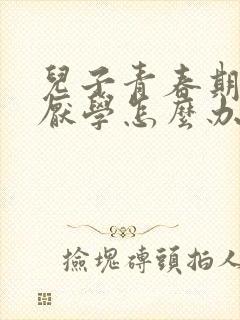 兒子青春期
厭學怎麼办
撿塊磚頭拍人